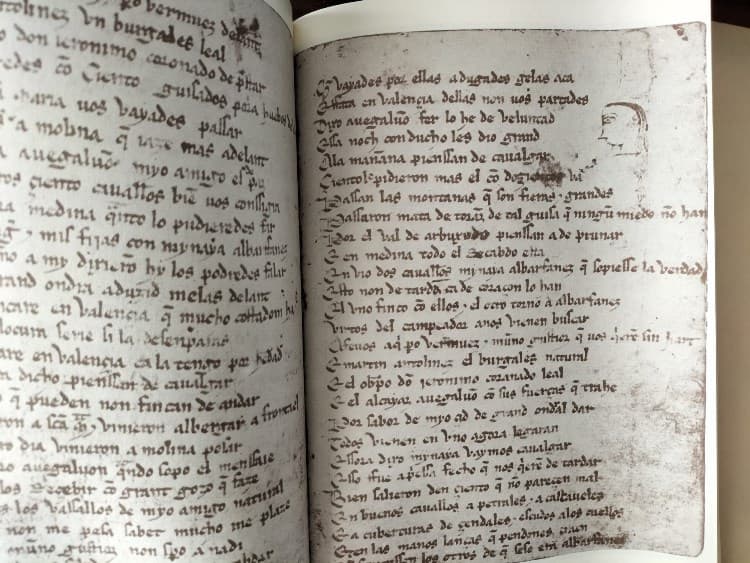 po vermuez delant
antolinez vn burgales leal
don ieronimo coronado de prestar
co ciento guisados pora
maria uos vayades passar
a molina q iaze mas adelant
auegaluo myo amigo es
ciento cauallos bie uos
medina qnto lo pudieredes fer
mis fijas con mynaya albarfanez
a my dixiero hy los podredes falar
grand ondra aduzid melas delant
fincare en valençia q mucho costadom ha
locura serie si la desenparas
en valençia ca la tengo por heredad
dicho pienssan de caualgar
q pueden non fincan de andar
vinieron albergar a frontael
dia vinieron a molina posar
auegaluon qndo sopo el menssaie
Reçebir co grant gozo q faze
los vassallos de myo amigo natural
non me pesa sabet mucho me plaze
muño gustioz non spo a nadi
Q vayades por ellas adugades gelas aca
E ffata en valençia dellas non uos partades
Dixo auegaluo fer lo he de veluntad
Essa noch conducho les dio grand
Ala mañana pienssan de caualgar
Çientol pidieron mas el co dozientos ua
Passan las montanas q son fieras · grandes
Passaron mata de toraz de tal guisa q ningu miedo no han
Por el val de arbuxedo pienssan a deprunar
E en medina todo el Recabdo esta
Enuio dos cauallos mynaya albarfanez q sopiesse la verdad
Esto non detarda ca de coraçon lo han
El vno finco co ellos · el otro torno a albarfanez
Virtos del campeador anos vienen buscar
Afeuos aq po vermuez · muño gustioz q uos qere sin hart
E martin antolinez el burgales natural
E el obpo do ieronimo coranado leal
E el alcayaz auegaluo co sus fuerças q trahe
Por sabor de myo çid de grand ondral dar
Todos vienen en vno agora legaran
Essora dixo mynaya vaymos caualgar
Esso ffue apssa fecho q nos qere de tardar
Bien salieron den çiento q no pareçen mal
En buenos cauallos a petrales · a cascaueles
E a cuberturas de çendales · escudos alos cuellos
E en las manos lanças q pendones traen
los otros de q seso era albarfanez